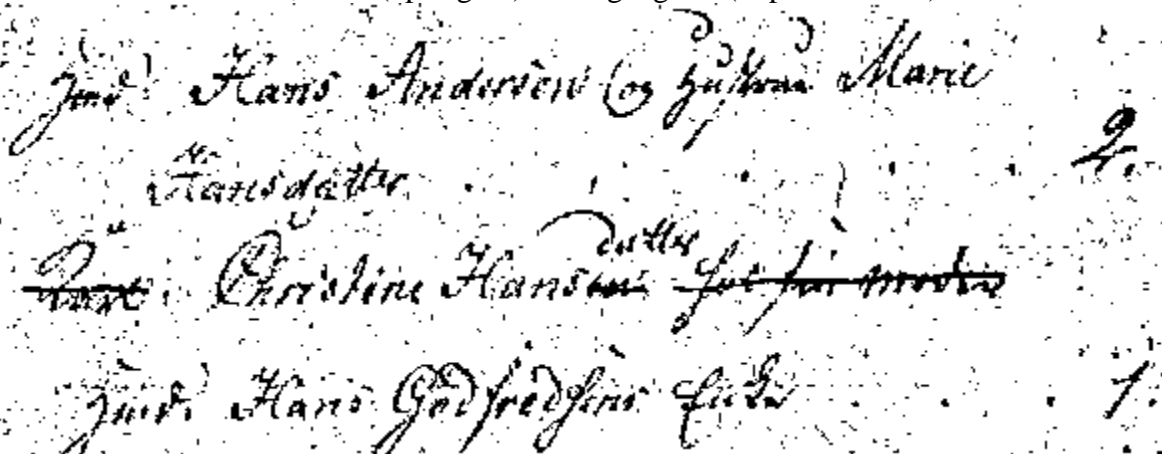 Huus. Hans Andersen og Hustrue Marie
Hansdatter 2.
Christine Hansen datter
Huus. Hans Godfredsens Enke 1.